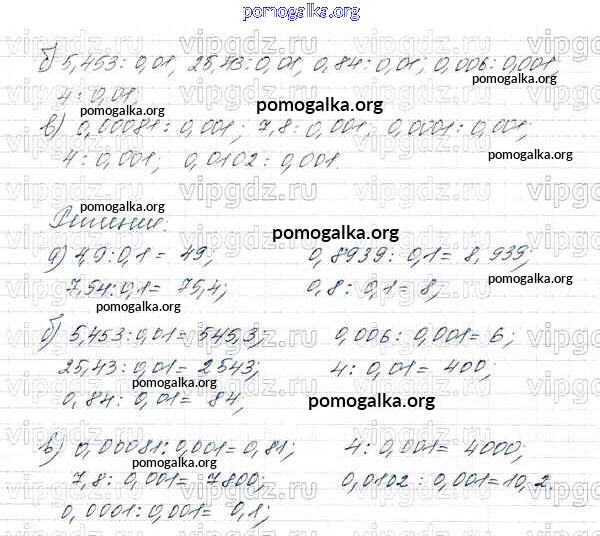 pomogalka.org
б) 5,453 : 0,01, 25,43 : 0,01, 0,84 : 0,01; 0,006 : 0,001
4 : 0,01;
в) 0,00081 : 0,001; 7,8 : 0,001; 0,0001 : 0,001;
4 : 0,001; 0,0102 : 0,001.
Решение:
а) 4,9 : 0,1 = 49; 0,8939 : 0,1 = 8,939;
7,54 : 0,1 = 75,4; 0,8 : 0,1 = 8;
б) 5,453 : 0,01 = 545,3; 0,006 : 0,001 = 6;
25,43 : 0,01 = 2543; 4 : 0,01 = 400;
0,84 : 0,01 = 84;
в) 0,00081 : 0,001 = 0,81; 4 : 0,001 = 4000;
7,8 : 0,001 = 7800; 0,0102 : 0,001 = 10,2.
0,0001 : 0,001 = 0,1;